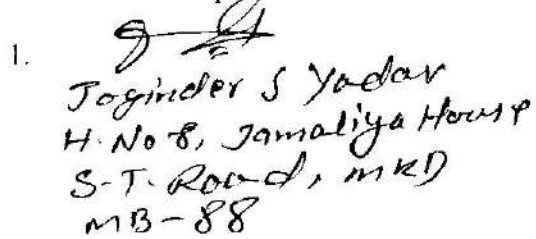 1.
Joginder S Yadav
H. No 8, Jamaliya House
S-T. Road, MKD
MB-88